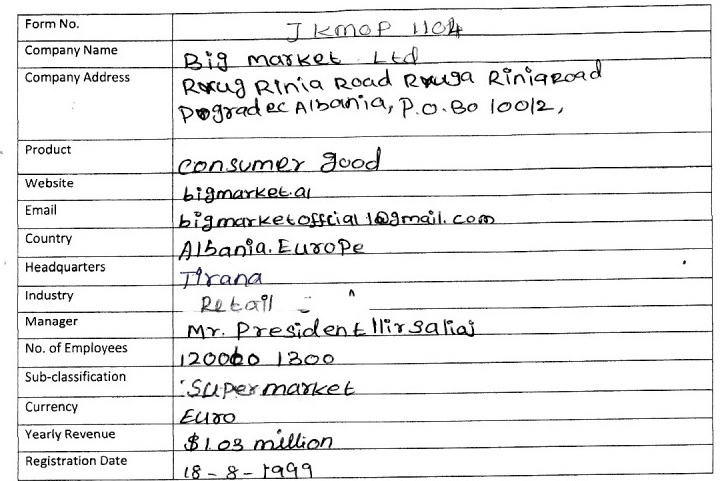 Form No. JKMOP 1104
Company Name Big market Ltd
Company Address Rrug Rinia Road Rruga Rinia Road
Pogradec Albania, P.O.Bo 10012,
Product consumer good
Website bigmarket.al
Email bigmarketoffcial1@gmail.com
Country Albania.Europe
Headquarters Tirana
Industry Retail
Manager Mr. President Ilirsaliaj
No. of Employees 120000 1300
Sub-classification Supermarket
Currency Euro
Yearly Revenue $1.03 million
Registration Date 18-8-1999